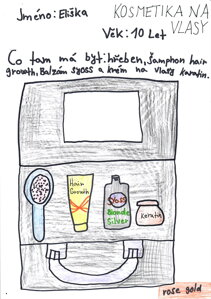 Jméno: Eliška
KOSMETIKA NA
VLASY
Věk: 10 Let
Co tam má být: hřeben, šamphon hair
growth, Balzám syoss a krém na vlasy karatin.
Hair
Growth
Syoss
Blonde
Silver
Keratin
rose gold